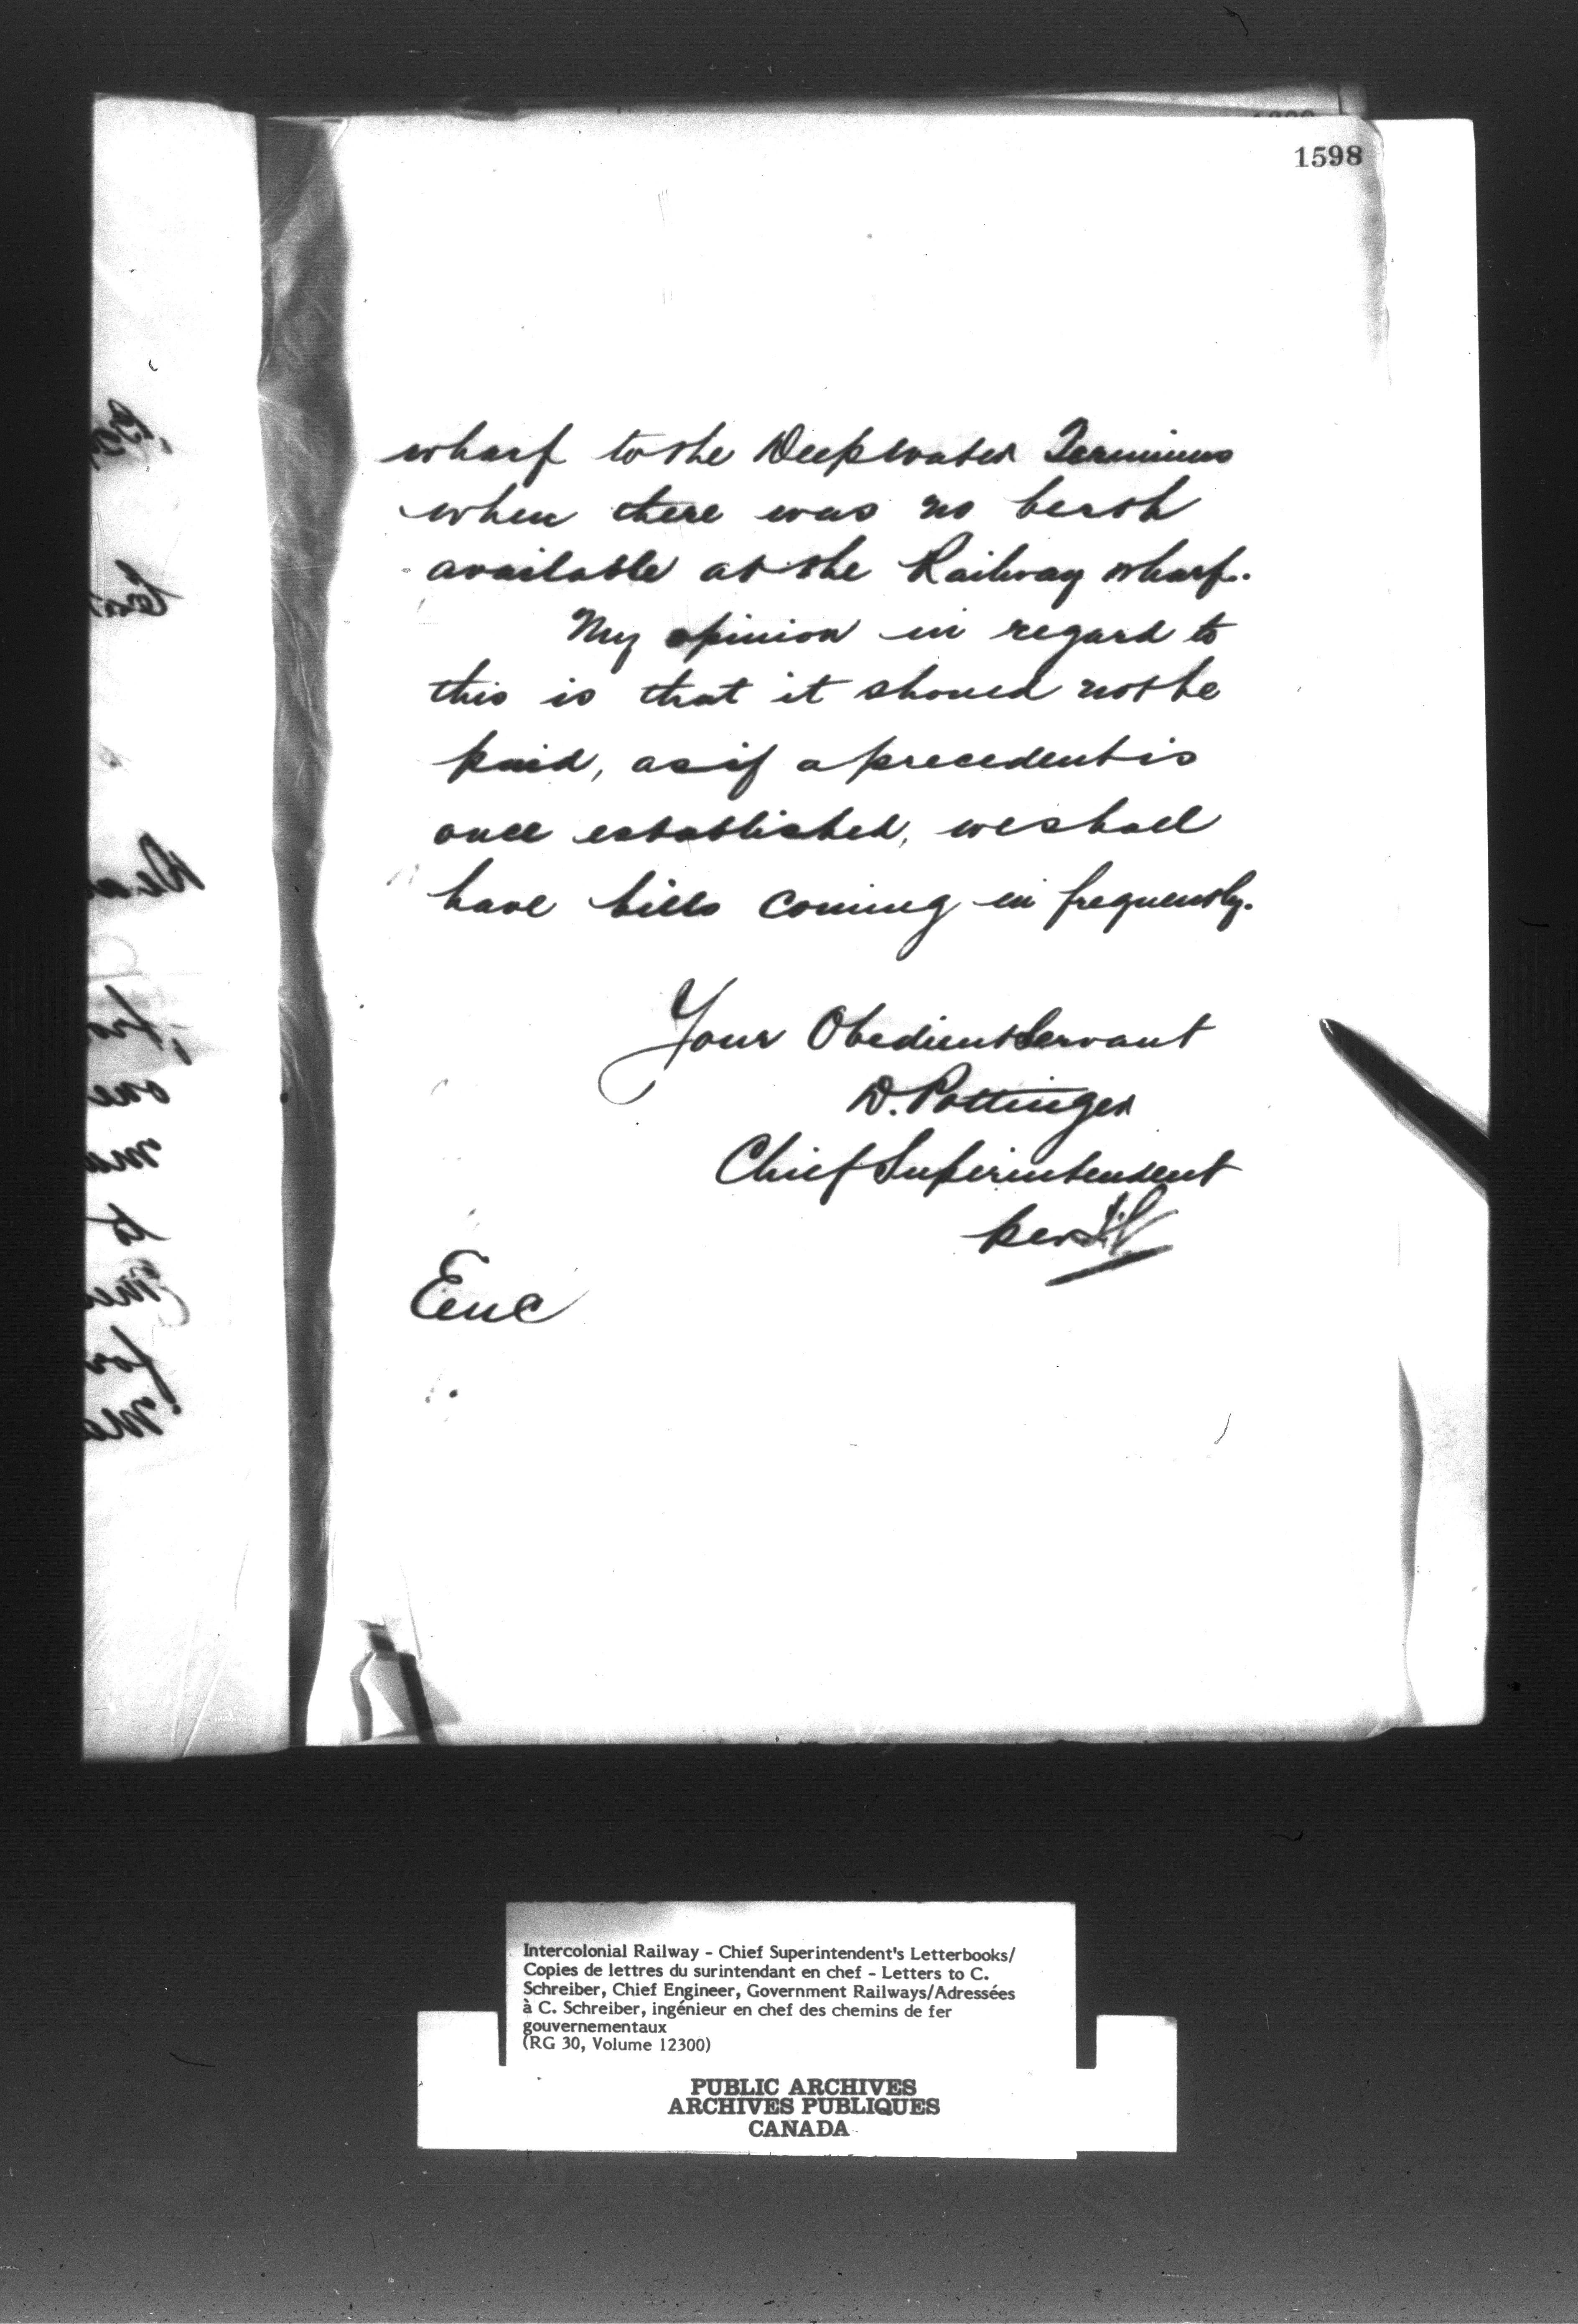 1598
wharf to the Deepwater Terminus
when there was no berth
available at the Railway wharf.
My opinion in regard to
this is that it should not be
paid, as if a precedent is
once established, we shall
have bills coming in frequently.
Your Obedient Servant
D. Pottinger
Chief Superintendent
per
Enc
Intercolonial Railway - Chief Superintendent's Letterbooks/
Copies de lettres du surintendant en chef - Letters to C.
Schreiber, Chief Engineer, Government Railways/Adressées
à C. Schreiber, ingénieur en chef des chemins de fer
gouvernementaux
(RG 30, Volume 12300)
PUBLIC ARCHIVES
ARCHIVES PUBLIQUES
CANADA